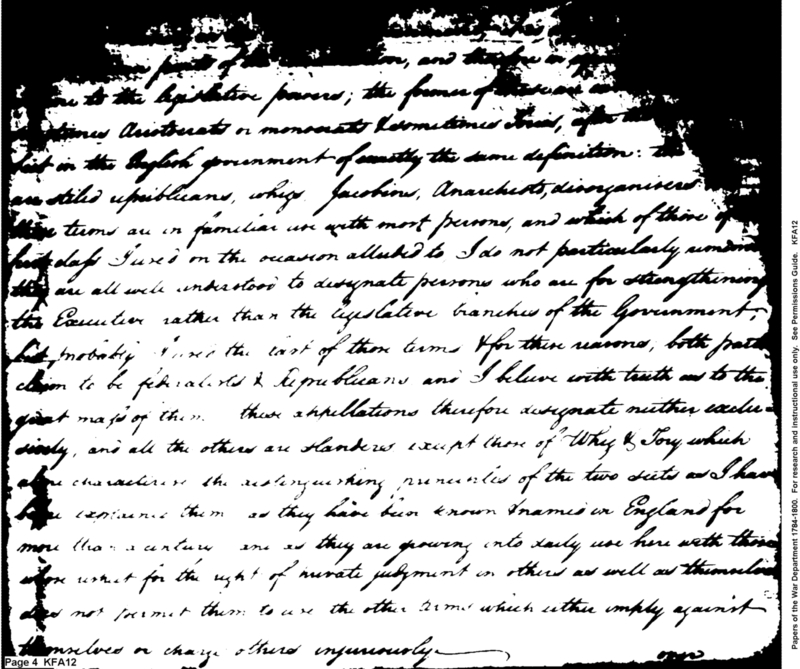 points of the constitution, and therefore in
to the legislative powers; the former of these are
sometimes Aristocrats or monocrats & sometimes Tories, after the
sect in the English government of exactly the same definition: the
are stiled republicans, whigs, Jacobins, Anarchists, disorganisers
these terms are in familiar use with most persons, and which of those of
first class I used on the occasion alluded to I do not particularly remember
they are all well understood to designate persons who are for strengthening
the Executive rather than the legislative branches of the Government,
but probably I used the last of those terms & for these reasons, both parties
claim to be federalists & Republicans and I believe with truth as to the
great mass of them these appellations therefore designate neither exclu-
sively, and all the others are slanders except those of Whig & Tory which
alone characterise the distinguishing principles of the two sects as I have
before explained them as they have been known & named in England for
more than a century and as they are growing into daily use here with those
whose respect for the right of private judgment in others as well as themselves
does not permit them to use the other terms which either imply against
themselves or charge others injuriously
over
Page 4 KFA12
Papers of the War Department 1784-1800. For research and instructional use only. See Permissions Guide. KFA12